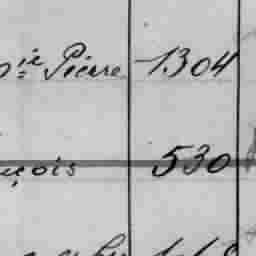 ie Pierre 1304
çois 530